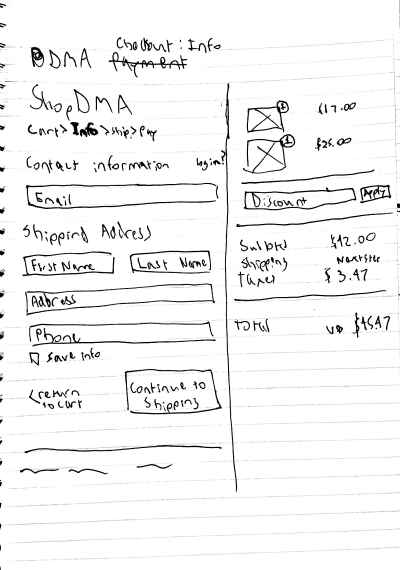 Checkout: Info
DMA Payment
ShopDMA
Cart > Info > Ship > Pay
Contact information login?
Email
Shipping Address
First Name Last Name
Address
Phone
Save info
< return to cart
Continue to Shipping
1 $17.00
1 $25.00
Discount Apply
Subtotal $42.00
Shipping Next step
Taxes $3.47
Total $45.47